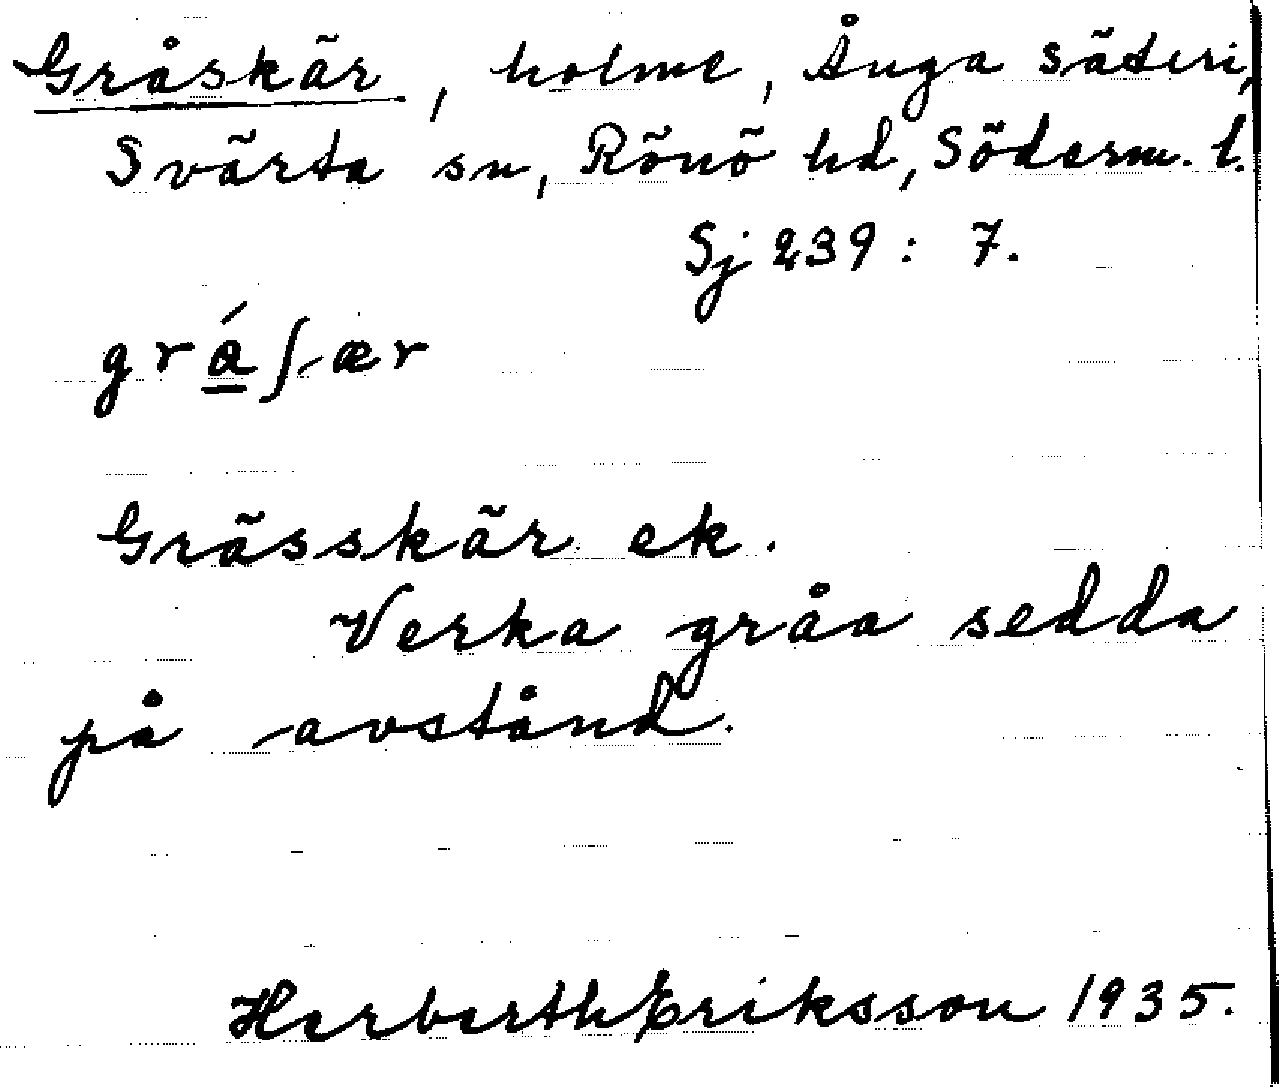 Gråskär, holme, Ånga säteri,
Svärta sn, Rönö hd, Söderm. l.
Sj 239 : 7.
grá̱ʃ-ær
Grässkär ek.
Verka gråa sedda
på avstånd.
Herberth Eriksson 1935.